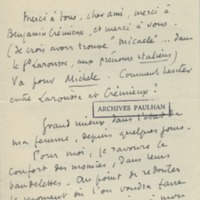 Merci à tous, cher ami, merci à
Benjamin Crémieux, et merci à vous.
(Je crois avoir trouvé "Micaele"... dans
le Pt Larousse, aux prénoms italiens)
Va pour Michele. Comment hésiter
entre Larousse et Crémieux ?
ARCHIVES PAULHAN
Grand mieux dans l'état de
ma femme, depuis quelques jours.
Pour moi, je savoure le
confort des momies, dans leurs
bandelettes. Au point de redouter
le moment où l'on voudra faire